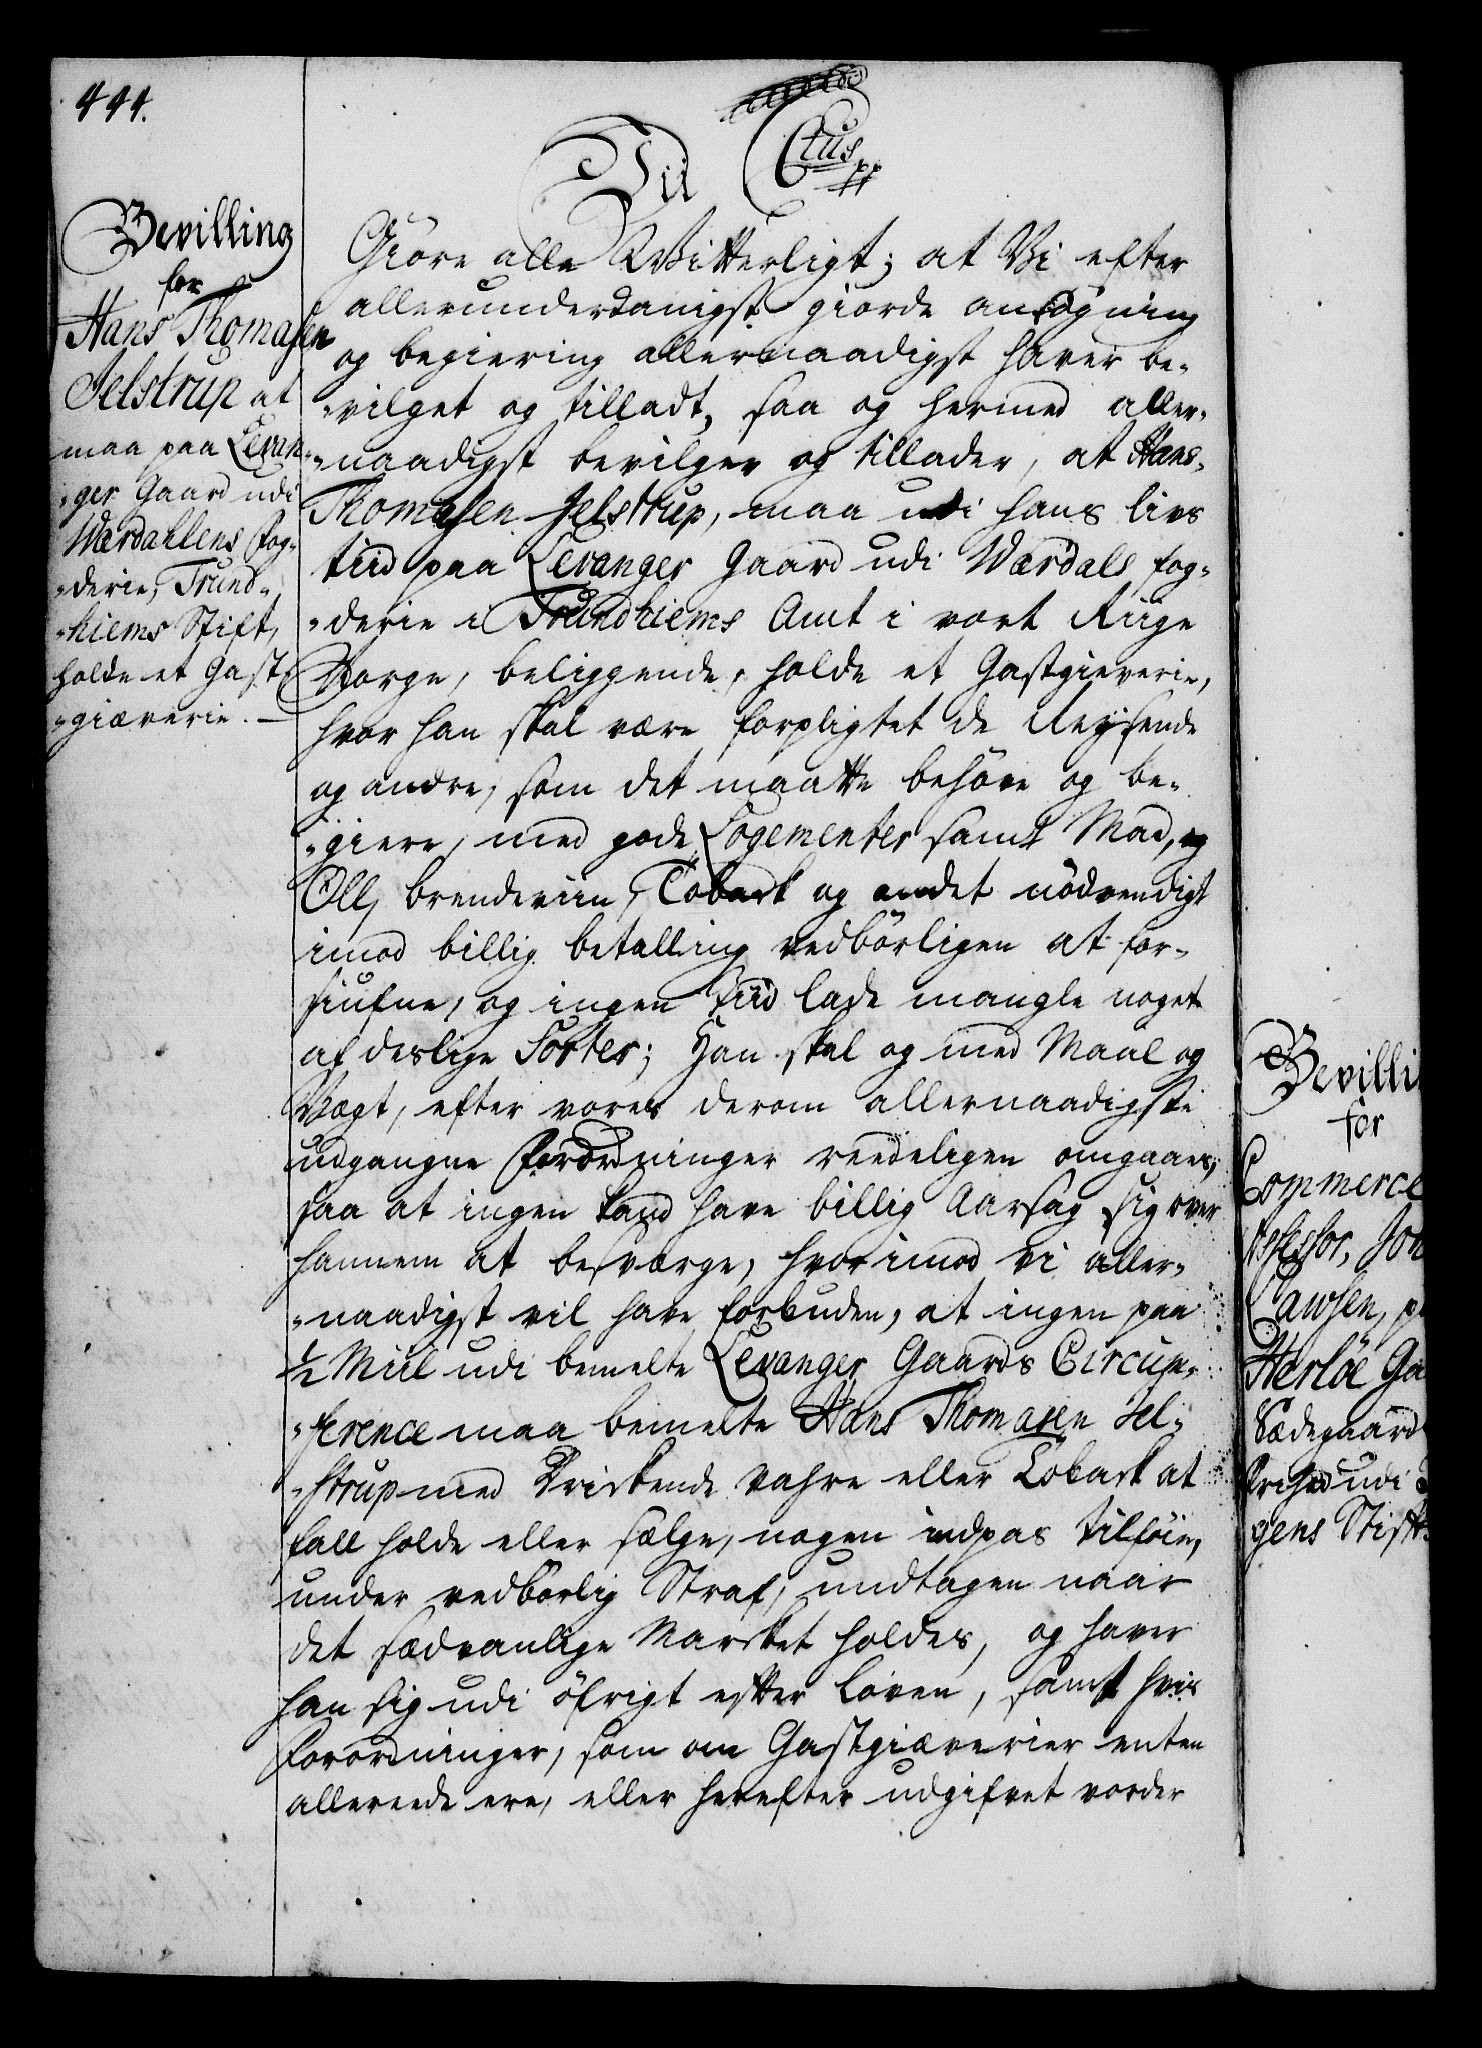 444.
Vii Ctus pp
Bevilling
for
Hans Thomasen
Jelstrup at
maa paa Levan-
-ger Gaard udi
Wærdahlens Fog-
-derie, Trund-
-hiems Stift,
holde et Gast
-giæverie.
Giöre alle Witterligt; at Vi efter
allerunderdanigst giorde ansögning
og begiering allernaadigst haver be-
-vilget og tilladt, saa og hermed aller-
-naadigst bevilger og tillader, at Hans
Thomasen Jelstrup, maa udi hans livs
tiid paa Levanger Gaard udi Wærdals fog-
-derie i Trundhiems Amt i vort Riige
Norge, beliggende, holde et Gastgieverie,
hvor han skal være forpligtet de Reysende
og andre, som det maatte behöve og be-
-giere, med gode Logementer samt Mad, og
Öll, brendeviin, Toback og andet nödvendigt
imod billig betalling vedbörligen at for-
siufne, og ingen tiid lade mangle noget
af deslige Sorter; Han skal og med Maal og
Vægt, efter vores derom allernaadigste
udgangne Forordninger reedeligen omgaaes,
saa at ingen kand have billig Aarsag sig over
hannem at besværge, hvorimod vi aller-
-naadigst vil have forbuden, at ingen paa
1/2 Miil udi bemelte Levanger Gaards Circum-
-ference maa bemelte Hans Thomasen Jel-
-strup med Drickende Vahre eller Toback at
fall holde eller sælge, nogen indpas tilföie,
under vedbörlig Straf, undtagen naar
det sædvanlige Marcket holdes, og haver
han sig udi öfrigt efter Loven, samt hvis
Forordninger, som om Gastgiæverier enten
allereede ere, eller herefter udgifvet vorder
Bevilli
for
Commerce
Assessor, Joh
Herlöe Ga
Sædegaard
Friheed udi
gens Stift